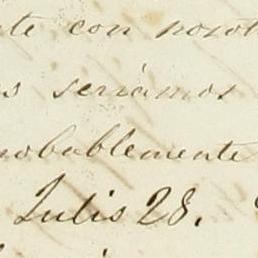 te con nosot
s seriamos
robablemente
Lutis 28.